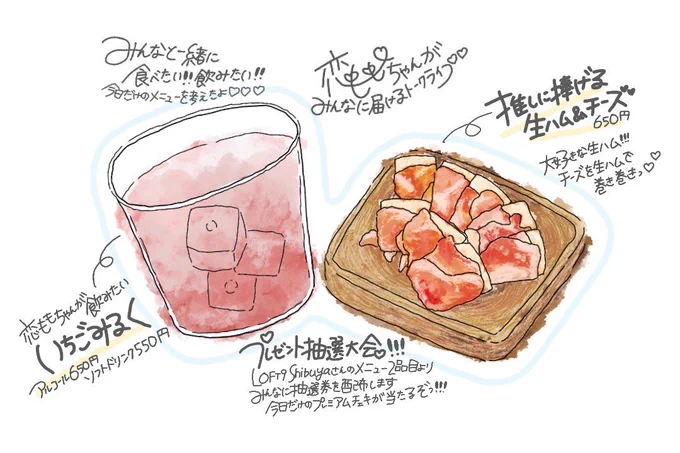 みんなと一緒に
食べたい!!飲みたい!!
今日だけのメニューを考えたよ♡♡♡
恋ももちゃんが♡♡
みんなに届けるトークライブ
推しに捧げる
生ハム&チーズ♡
650円
大好きな生ハム!!!
チーズを生ハムで
巻き巻きっ♡♡
恋ももちゃんが飲みたい
いちごみるく
アルコール650円
ソフトドリンク550円
プレゼント抽選大会♡!!!
LOFT9 Shibuyaさんのメニュー2品目より
みんなに抽選券を配布します
今日だけのプレミアムチェキが当たるぞっ!!!